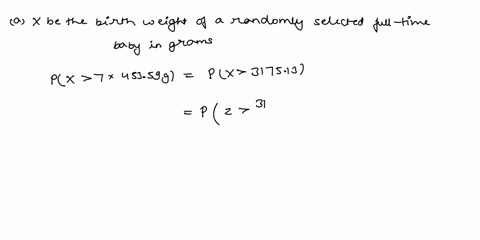 (a) X be the birth weight of a randomly selected full-time
baby in grams
P(X > 7 × 453.59g) = P(X > 3175.13)
= P( z > 31